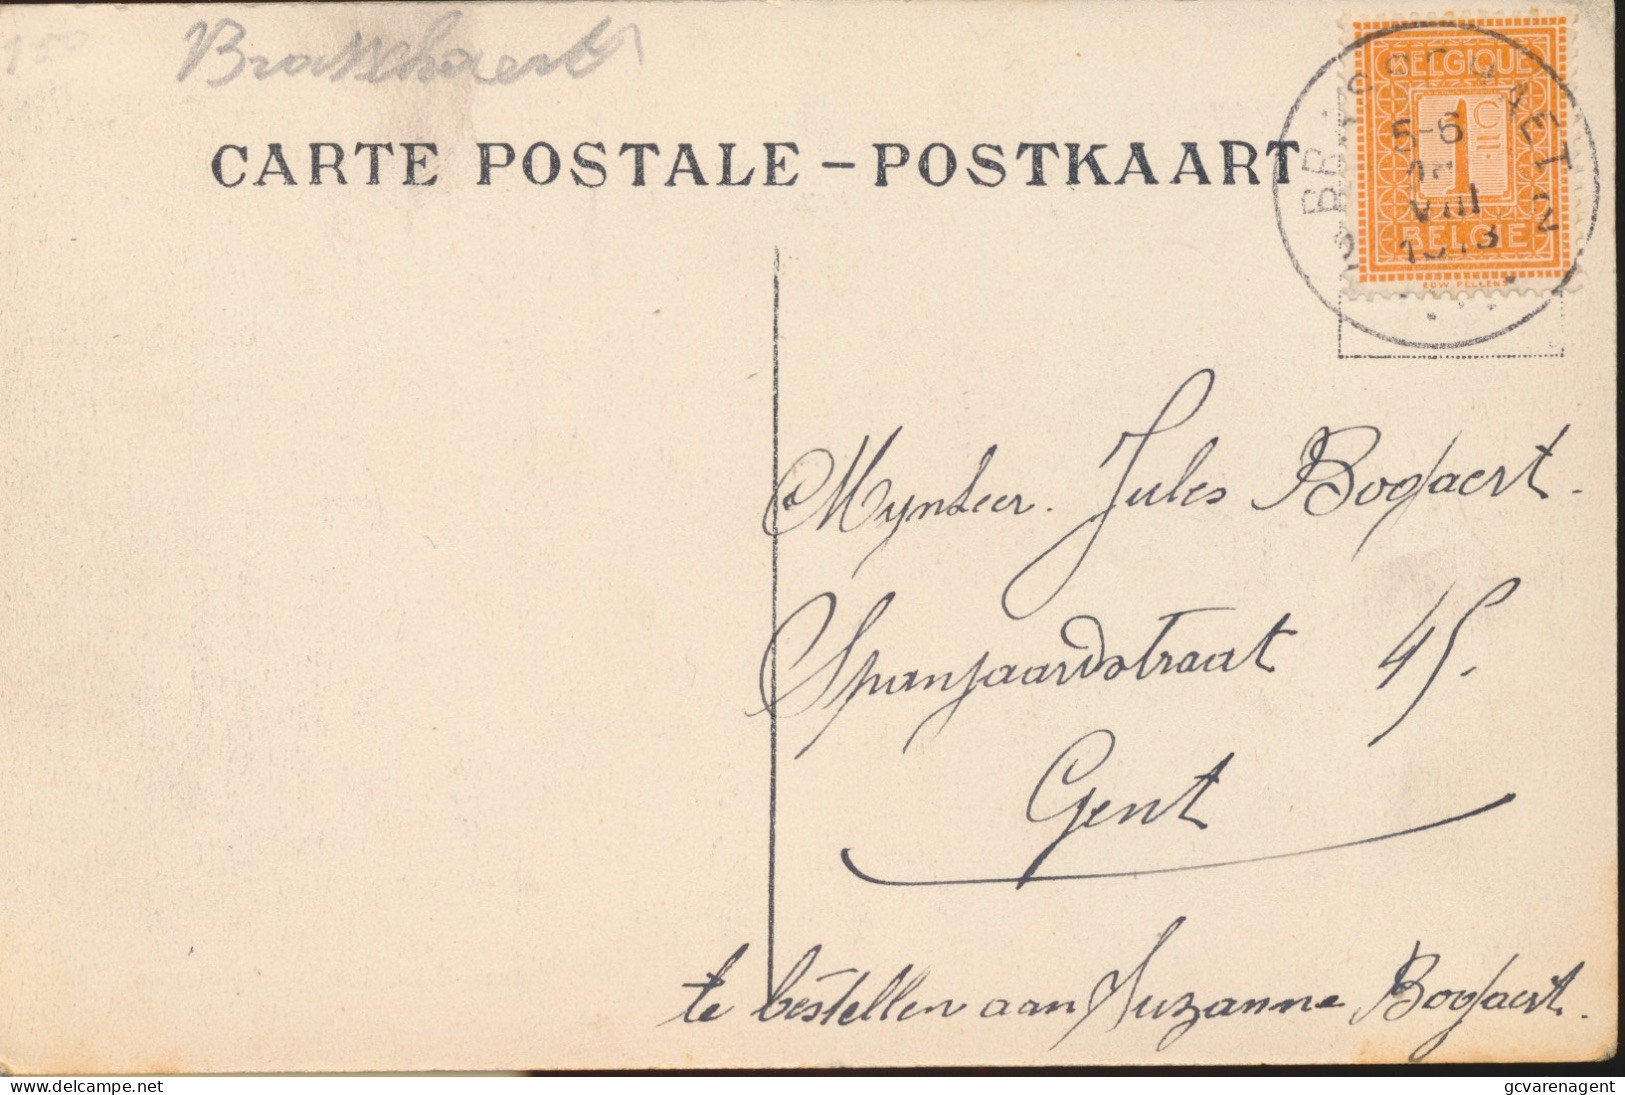 1 50
Brasschaert
CARTE POSTALE – POSTKAART
BELGIQUE
1 Cm.
BELGIË
EDW PELLENS
5-6
VIII
Mynheer. Jules Bogaert.
Spanjaardstraat 45.
Gent
te bestellen aan Suzanne Bogaert.
delcampe.net
gcvarenagent